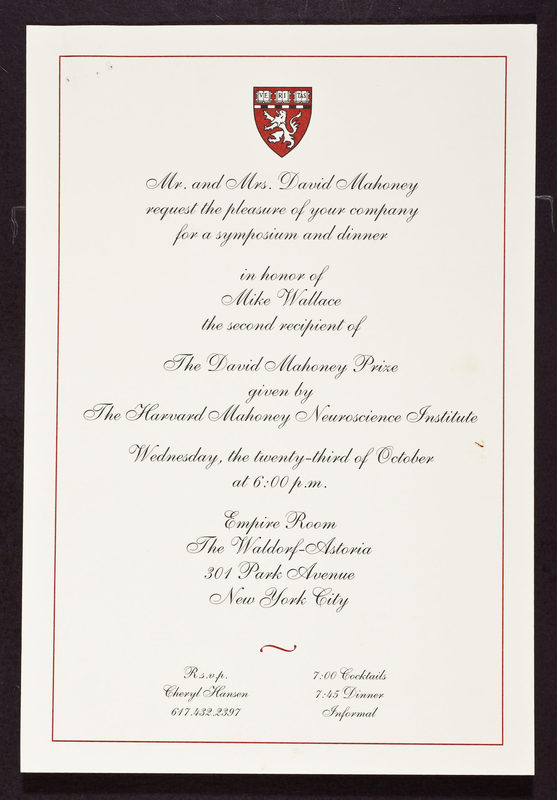 VE RI TAS
Mr. and Mrs. David Mahoney
request the pleasure of your company
for a symposium and dinner
in honor of
Mike Wallace
the second recipient of
The David Mahoney Prize
given by
The Harvard Mahoney Neuroscience Institute
Wednesday, the twenty-third of October
at 6:00 p.m.
Empire Room
The Waldorf-Astoria
301 Park Avenue
New York City
R.s.v.p.
Cheryl Hansen
617.432.2397
7:00 Cocktails
7:45 Dinner
Informal